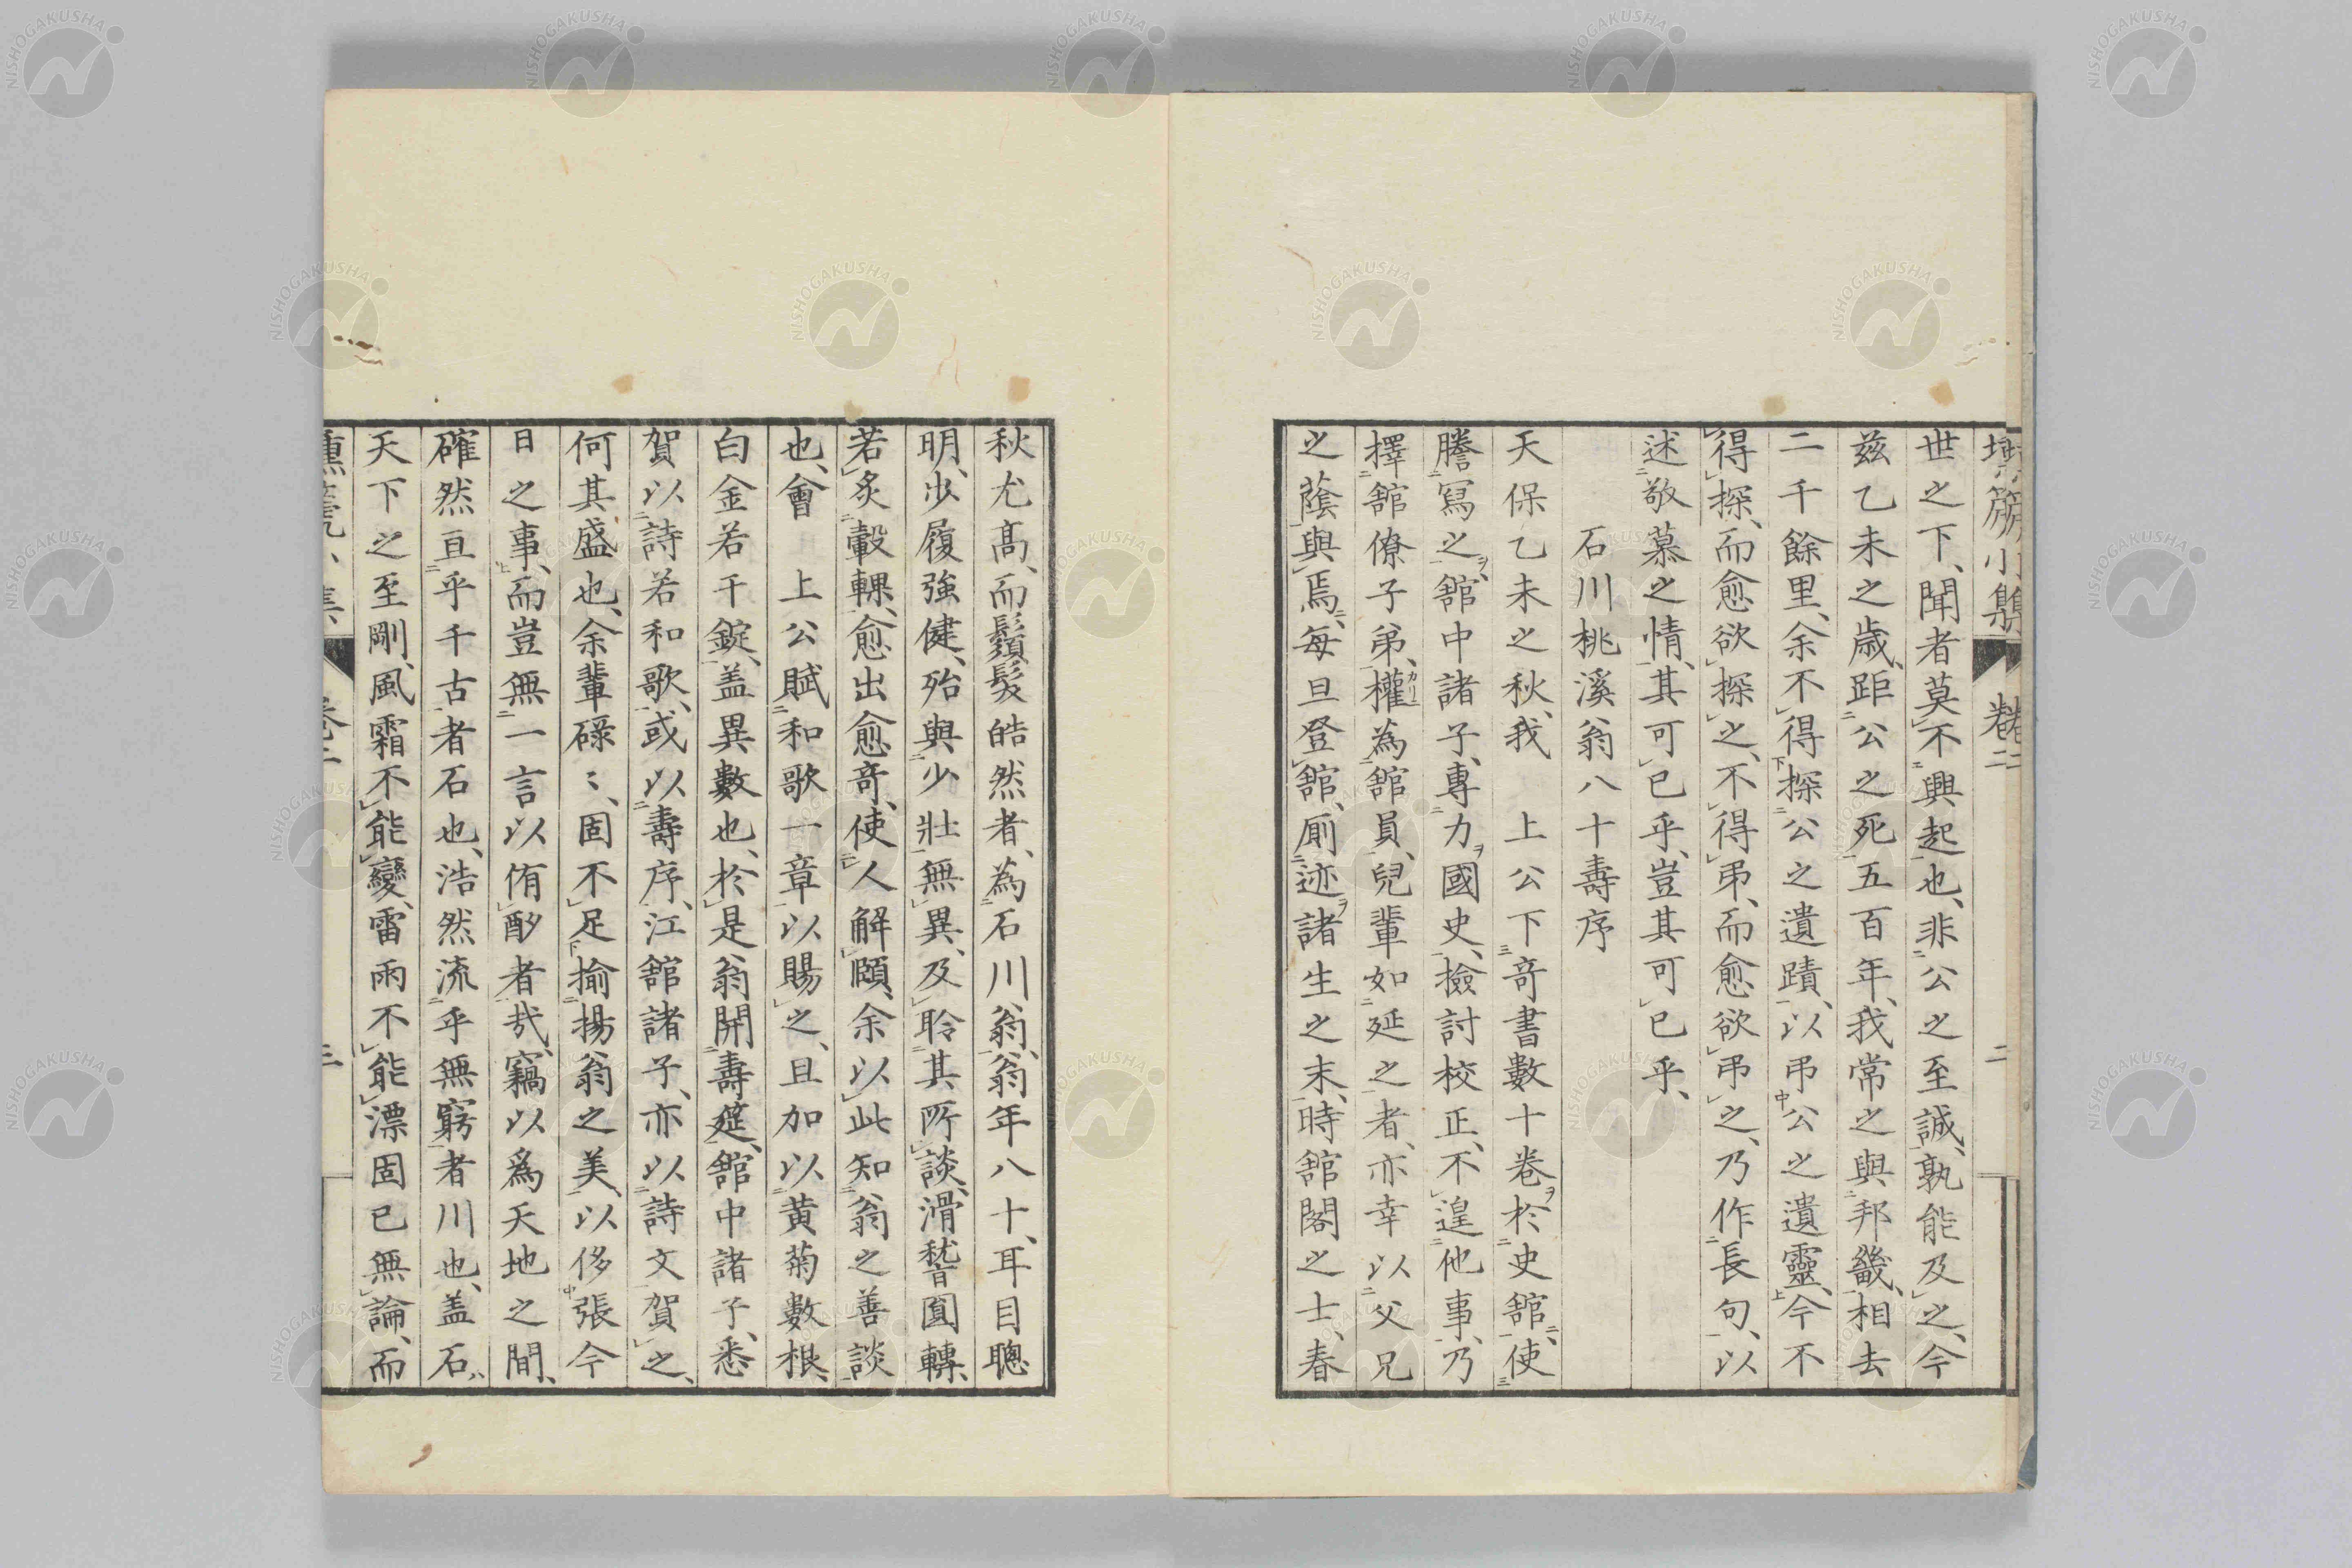 世之下、聞者莫不興起也、非公之至誠、孰能及之、今
茲乙未之歳、距公之死五百年、我常之與邦畿、相去
二千餘里、余不得探公之遺蹟、以弔公之遺靈、今不
得探、而愈欲探之、不得弔、而愈欲弔之、乃作長句、以
述敬慕之情、其可已乎、豈其可已乎、
石川桃溪翁八十壽序
天保乙未之秋、我 上公下奇書數十卷於史舘、使
謄冩之、舘中諸子、專力國史、檢討校正、不遑他事、乃
擇舘僚子弟、權為舘員、兒輩如延之者、亦幸以父兄
之蔭與焉、毎旦登舘、厠迹諸生之末、時舘閣之士、春
秋尤髙、而鬚髮皓然者、為石川翁、翁年八十、耳目聰
明、步履強健、殆與少壯無異、及聆其所談、滑稽圓轉、
若炙轂輠、愈出愈奇、使人解頤、余以此知翁之善談
也、會 上公賦和歌一章以賜之、且加以黃菊數根、
白金若干錠、盖異數也、於是翁開壽筵、舘中諸子、悉
賀以詩若和歌、或以壽序、江舘諸子、亦以詩文賀之、
何其盛也、余輩碌〻、固不足揄揚翁之美、以侈張今
日之事、而豈無一言以侑酌者哉、竊以爲天地之間、
確然亘乎千古者石也、浩然流乎無窮者川也、盖石
天下之至剛、風霜不能變、雷雨不能漂固已無論、而
卷二
三